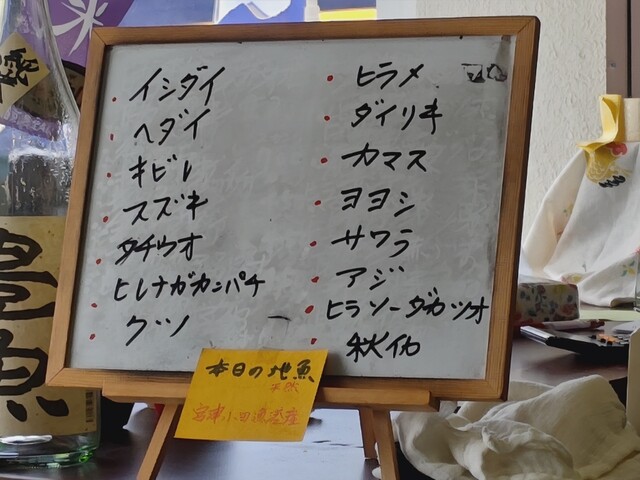 イシダイ
ヘダイ
キビレ
スズキ
タチウオ
ヒレナガカンパチ
グソ
ヒラメ
ダイリキ
カマス
ヨヨシ
サワラ
アジ
ヒラソーダガツオ
秋イカ
本日の地魚